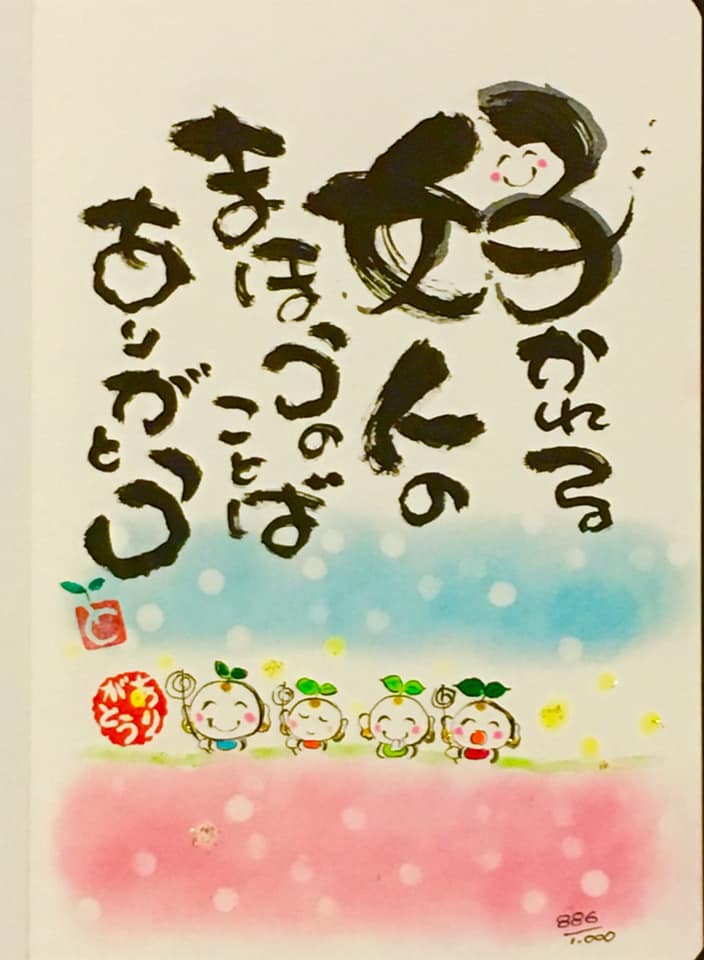 好かれる
人の
まほうの
ことば
ありがとう
と
ありがとう
886
1.000